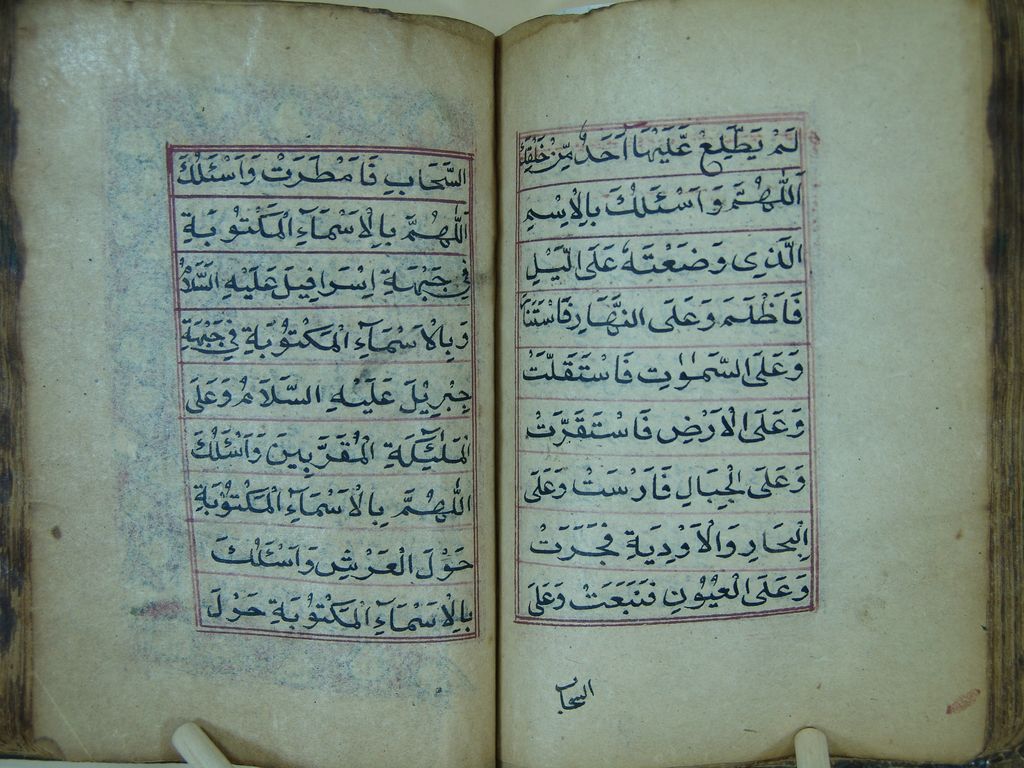 لَمْ يَطَّلِعْ عَلَيْهَا اَحَدٌ مِّنْ خَلْقِكَ
اَللّٰهُمَّ وَاَسْئَلُكَ بِالْاِسْمِ
الَّذِى وَضَعْتَهٗ عَلَى الَّيْلِ
فَاَظْلَمَ وَعَلَى النَّهَارِ فَاسْتَنَارَ
وَعَلَى السَّمٰوٰتِ فَاسْتَقَلَّتْ
وَعَلَى الْاَرْضِ فَاسْتَقَرَّتْ
وَعَلَى الْجِبَالِ فَاَرْسَتْ وَعَلَى
الْبِحَارِ وَالْاَوْدِيَةِ فَجَرَتْ
وَعَلَى الْعُيُوْنِ فَنَبَعَتْ وَعَلَى
السحاب
السَّحَابِ فَاَمْطَرَتْ وَاَسْئَلُكَ
اَللّٰهُمَّ بِالْاَسْمَآءِ الْمَكْتُوْبَةِ
فِى جَبْهَةِ اِسْرَافِيلَ عَلَيْهِ السَّلَامُ
وَبِالْاَسْمَآءِ الْمَكْتُوْبَةِ فِى جَبْهَةِ
جِبْرِيْلَ عَلَيْهِ السَّلَامُ وَعَلَى
الْمَلٰٓئِكَةِ الْمُقَرَّبِينَ وَاَسْئَلُكَ
اَللّٰهُمَّ بِالْاَسْمَآءِ الْمَكْتُوْبَةِ
حَوْلَ الْعَرْشِ وَاَسْئَلُكَ
بِالْاَسْمَآءِ الْمَكْتُوْبَةِ حَوْلَ